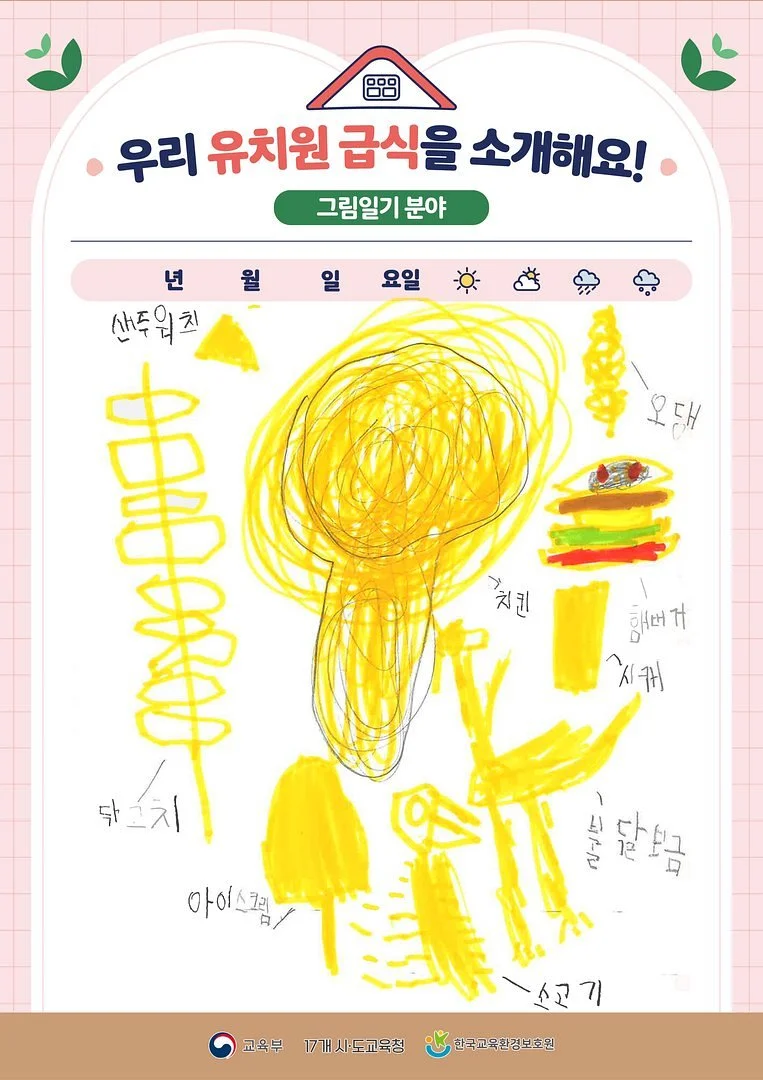 우리 유치원 급식을 소개해요!
그림일기 분야
년 월 일 요일
샌두위치
오댕
치킨
햄버거
시캐
닥고치
불닭보금
아이스크림
소고기
교육부 17개 시·도교육청 한국교육환경보호원